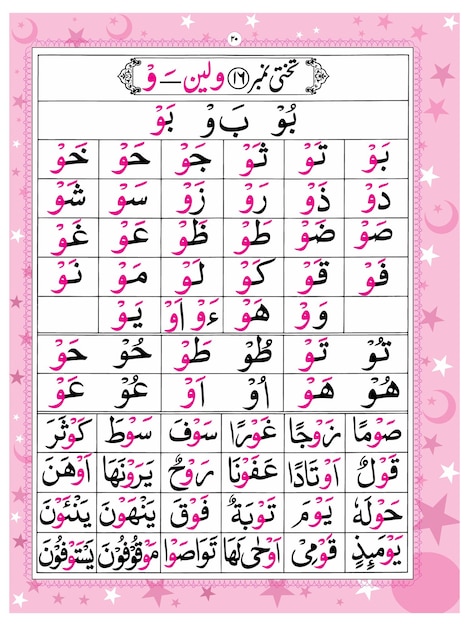 ۲۰
تختی نمبر ۱۶ ولین - وْ
بُوْ بَ وْ بَوْ
بَوْ تَوْ ثَوْ جَوْ حَوْ خَوْ
دَوْ ذَوْ رَوْ زَوْ سَوْ شَوْ
صَوْ ضَوْ طَوْ ظَوْ عَوْ غَوْ
فَوْ قَوْ كَوْ لَوْ مَوْ نَوْ
وَوْ هَوْ ءَوْ اَوْ يَوْ
تُوْ تَوْ طُوْ طَوْ حُوْ حَوْ
هُوْ هَوْ اُوْ اَوْ عُوْ عَوْ
صَوْمًا زَوْجًا غَوْرًا سَوْفَ سَوْطَ كَوْثَرَ
قَوْلٌ اَوْتَادًا عَفَوْنَا رَوْحٌ يَرَوْنَهَا اَوْهَنَ
حَوْلَهٗ يَوْمَ تَوْبَةٌ فَوْقَ يَنْهَوْنَ يَنْـَٔوْنَ
يَوْمَىِٕذٍ قَوْمِىْ اَوْحٰى لَهَا تَوَاصَوْا مَوْقُوْفُوْنَ يَسْتَوْفُوْنَ